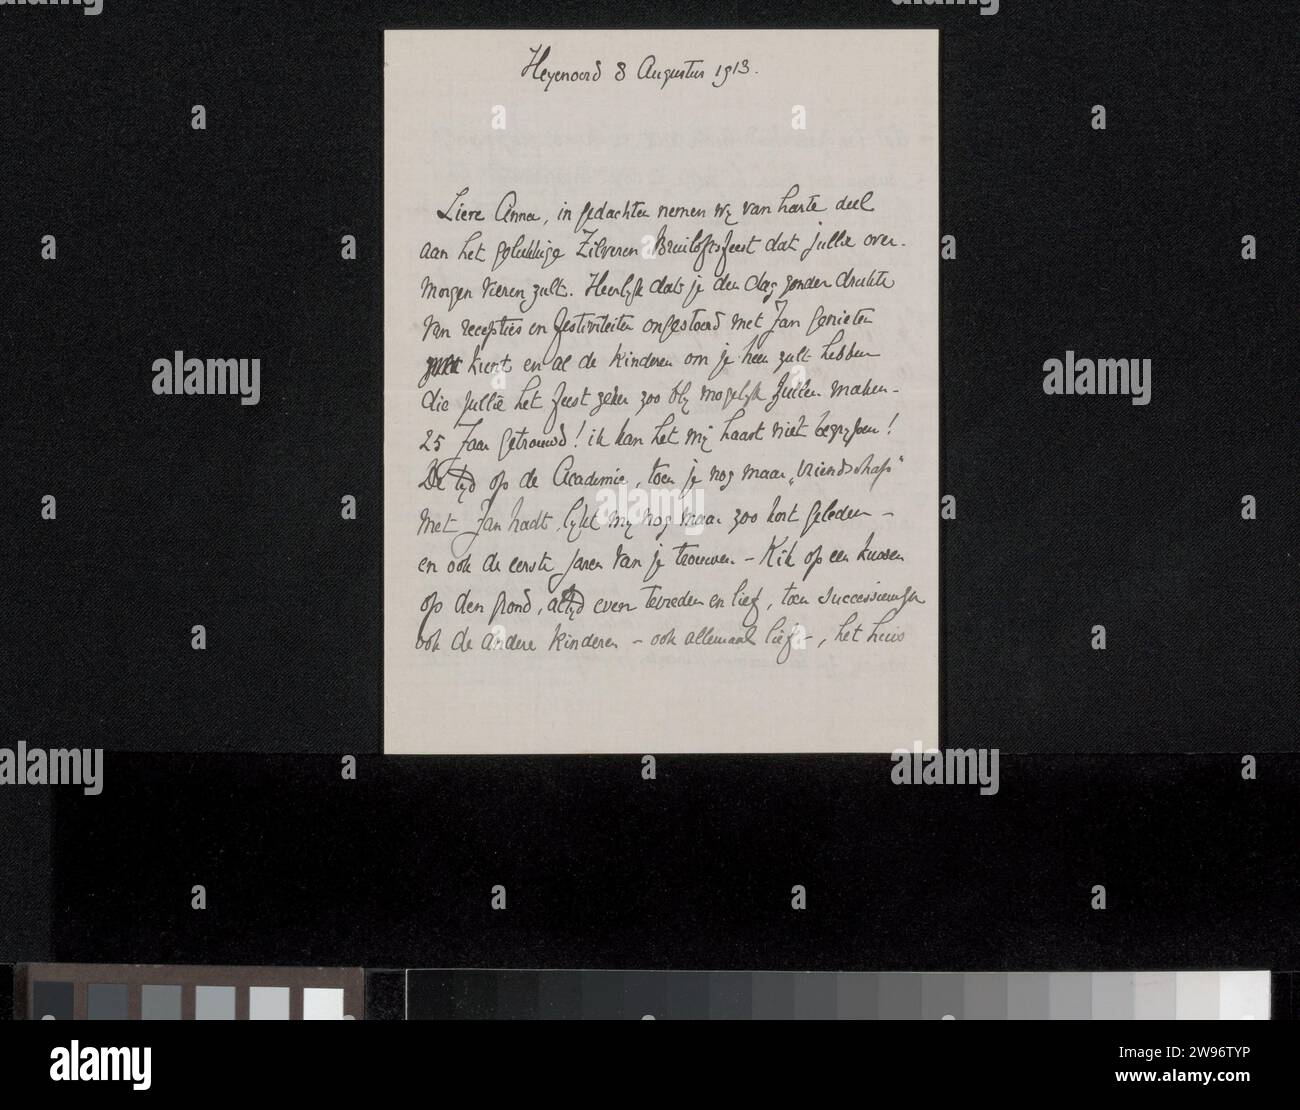 Heyenoord 8 Augustus 1913.
Lieve Anna, in gedachten nemen wij van harte deel
aan het gelukkige Zilveren Bruiloftsfeest dat jullie over-
morgen vieren zult. Heerlijk dat je den dag zonder drukte
van recepties en festiviteiten ongestoord met Jan genieten
kunt en al de kinderen om je heen zult hebben
die jullie het feest zeker zoo blij mogelijk zullen maken -
25 Jaar getrouwd! ik kan het mij haast niet begrijpen!
De tijd op de Academie, toen je nog maar „vriendschap"
met Jan hadt, lijkt mij nog maar zoo kort geleden -
en ook de eerste jaren van je trouwen. - Kik op een kussen
op den grond, altijd even tevreden en lief, toen successievelijk
ook de andere kinderen - ook allemaal lief -, het huis
alamy
Image ID: 2W96TYP
www.alamy.com